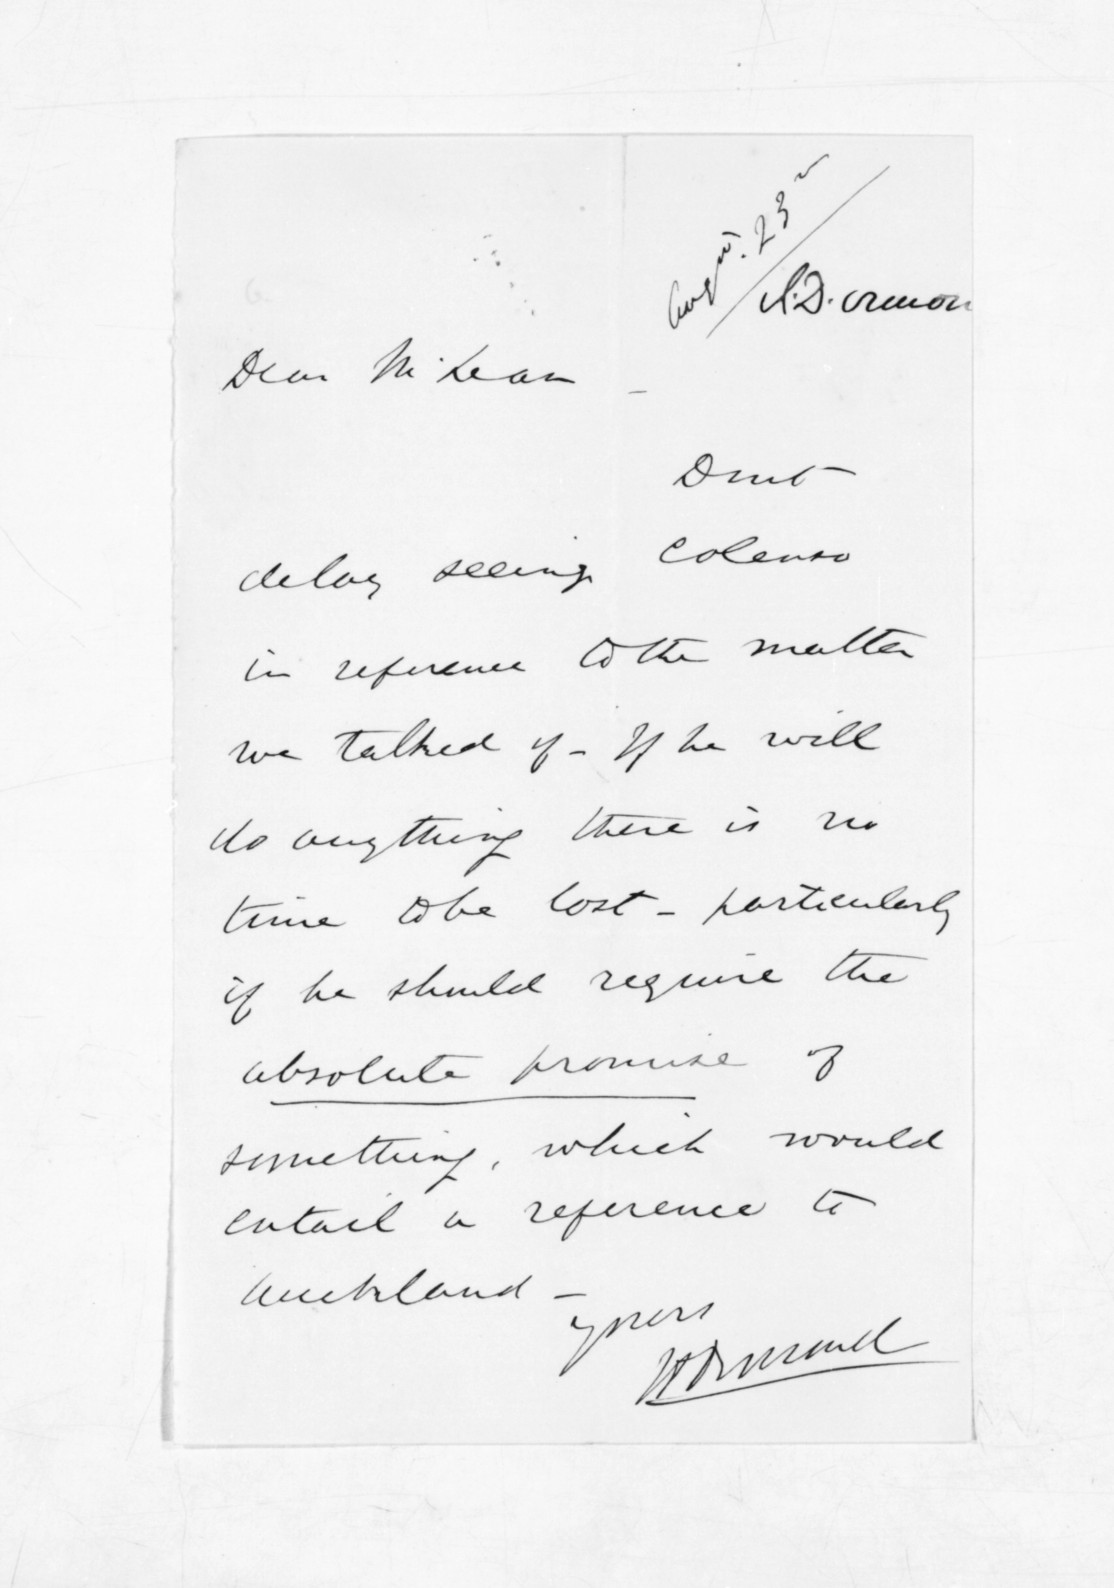 August. 23rd
J.D. Ormon
Dear McLean -
Dont
delay seeing Colenso
in reference to the matter
we talked of - If he will
do anything there is no
time to be lost - particularly
if he should require the
absolute promise of
something, which would
entail a reference to
Auckland -
yours
JDOrmond